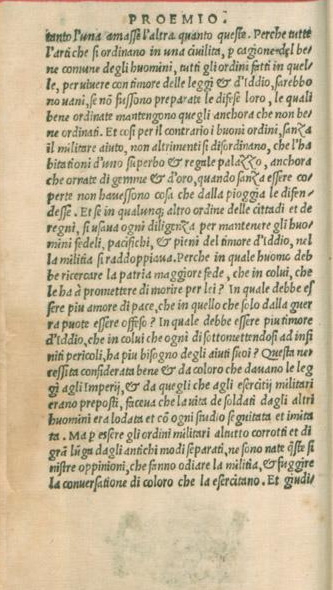 PROEMIO.
tanto l'una amasse l'altra quanto queste. Perche tutte
l'arti che si ordinano in una civilita, p cagione del be/
ne comune degli huomini, tutti gli ordini fatti in quel/
le, per vivere con timore delle leggi & d'Iddio, sarebbo
no vani, se nõ fussono preparate le difese loro, le quali
bene ordinate mantengono quegli anchora che non be/
ne ordinati. Et cosi per il contrario i buoni ordini, sanza
il militare aiuto, non altrimenti si disordinano, che l'ha
bitationi d'uno superbo & regale palazzo, anchora
che ornate di gemme & d'oro, quando sanza essere co/
perte non havessono cosa che dalla pioggia le difen/
desse. Et se in qualunq; altro ordine delle cittadi et de
regni, si usava ogni diligenza per mantenere gli huo/
mini fedeli, pacifichi, & pieni del timore d'Iddio, nel
la militia si raddoppiava. Perche in quale huomo deb
be ricercare la patria maggiore fede, che in colui, che
le ha à promettere di morire per lei? In quale debbe es
sere piu amore di pace, che in quello che solo dalla guer
ra puote essere offeso? In quale debbe essere piu timore
d'Iddio, che in colui che ogni di sottomettendosi ad infi
niti pericoli, ha piu bisogno degli aiuti suoi? Questa ne/
cessita considerata bene & da coloro che davano le leg
gi agli Imperij, & da quegli che agli esercitij militari
erano preposti, faceva che la vita de soldati dagli altri
huomini era lodata et cõ ogni studio seguitata et imita
ta. Ma p essere gli ordini militari al tutto corrotti et di
grã lũga dagli antichi modi separati, ne sono nate q̃ste si
nistre oppinioni, che fanno odiare la militia, & fuggire
la conversatione di coloro che la esercitano. Et giudi/